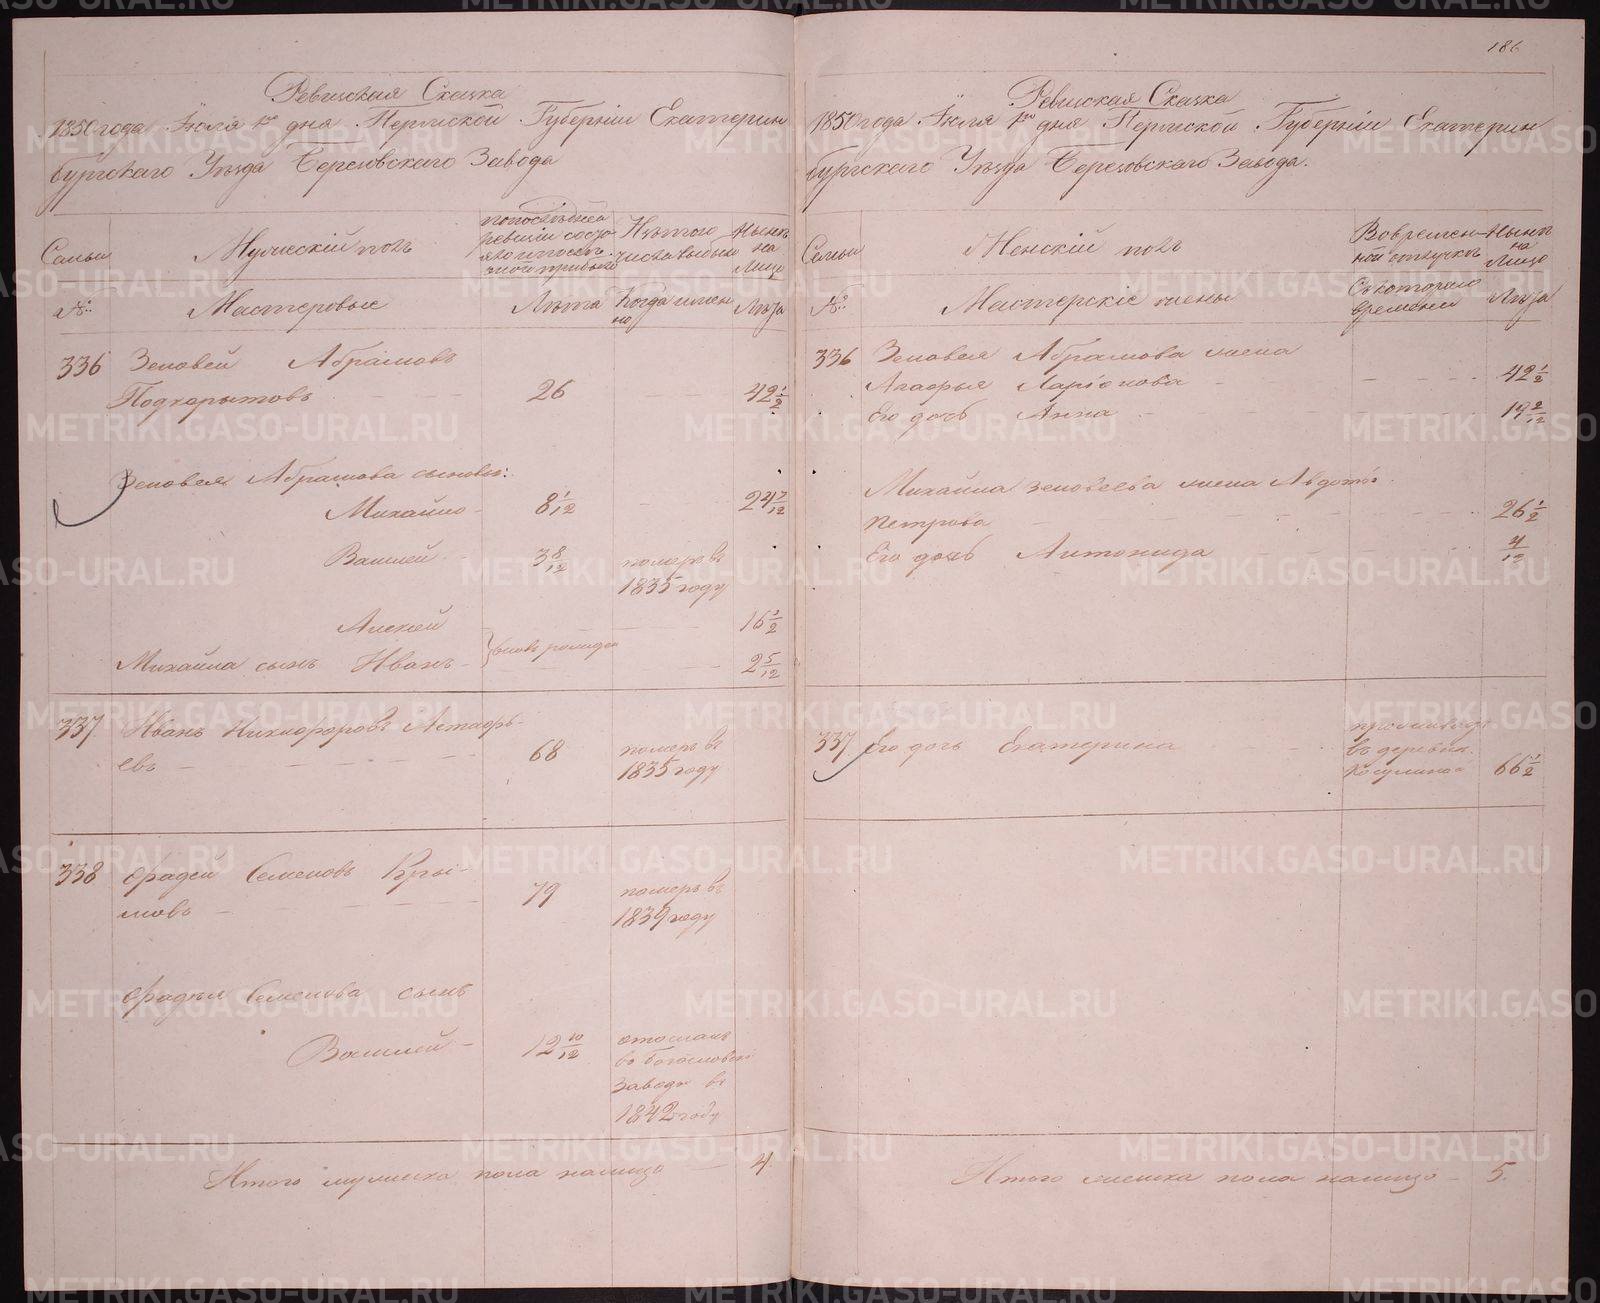 Ревизская Сказка
1850 года Июля 1го дня Пермской Губернiи Екатерин
бургскаго Уезда Березовскаго Завода
Семьи
Мужескiй полъ
по последней
ревизiи состо
яло и после
оной прибыло
Изъ того
числа выбыло
Ныне
на
Лицо
№:
Мастеровые
Лета
Когда имен
но
Лета
336
Зеновей Абрамовъ
Подкорытовъ
26
42 1/2
Зеновея Абрамова сыновья:
Михайло
8 1/12
24 7/12
Василей
3 8/12
померъ въ
1835 году
Алексей
16 1/2
вновь рожден
Михайла сынъ Иванъ
2 5/12
337
Иванъ Никифоровъ Астафь-
евъ
68
померъ въ
1835 году
338
Фадей Семеновъ Кры-
мовъ
79
померъ въ
1839 году
Фадея Семенова сынъ
Василей
12 10/12
отосланъ
въ Богословскi
заводы въ
1842 году
Итого мужеска пола налицо 4.
186
Ревизская Сказка
1850 года Июля 1го дня Пермской Губернiи Екатерин
бургскаго Уезда Березовскаго Завода.
Семьи
Женскiй полъ
Во времен-
ной отлучке
Ныне
на
Лицо
№:
Мастерскiе жены
Съ котораго
времени
Лета
336
Зеновея Абрамова жена
Агафья Ларiонова
42 1/2
Его дочь Анна
19 2/12
Михайла Зеновеева жена Авдотья
Петрова
26 1/2
Его дочь Антонида
4/12
337
Его дочь Екатерина
проживаетъ
въ деревне
Косулиной
66 1/2
Итого женска пола налицо 5.
METRIKI.GASO-URAL.RU